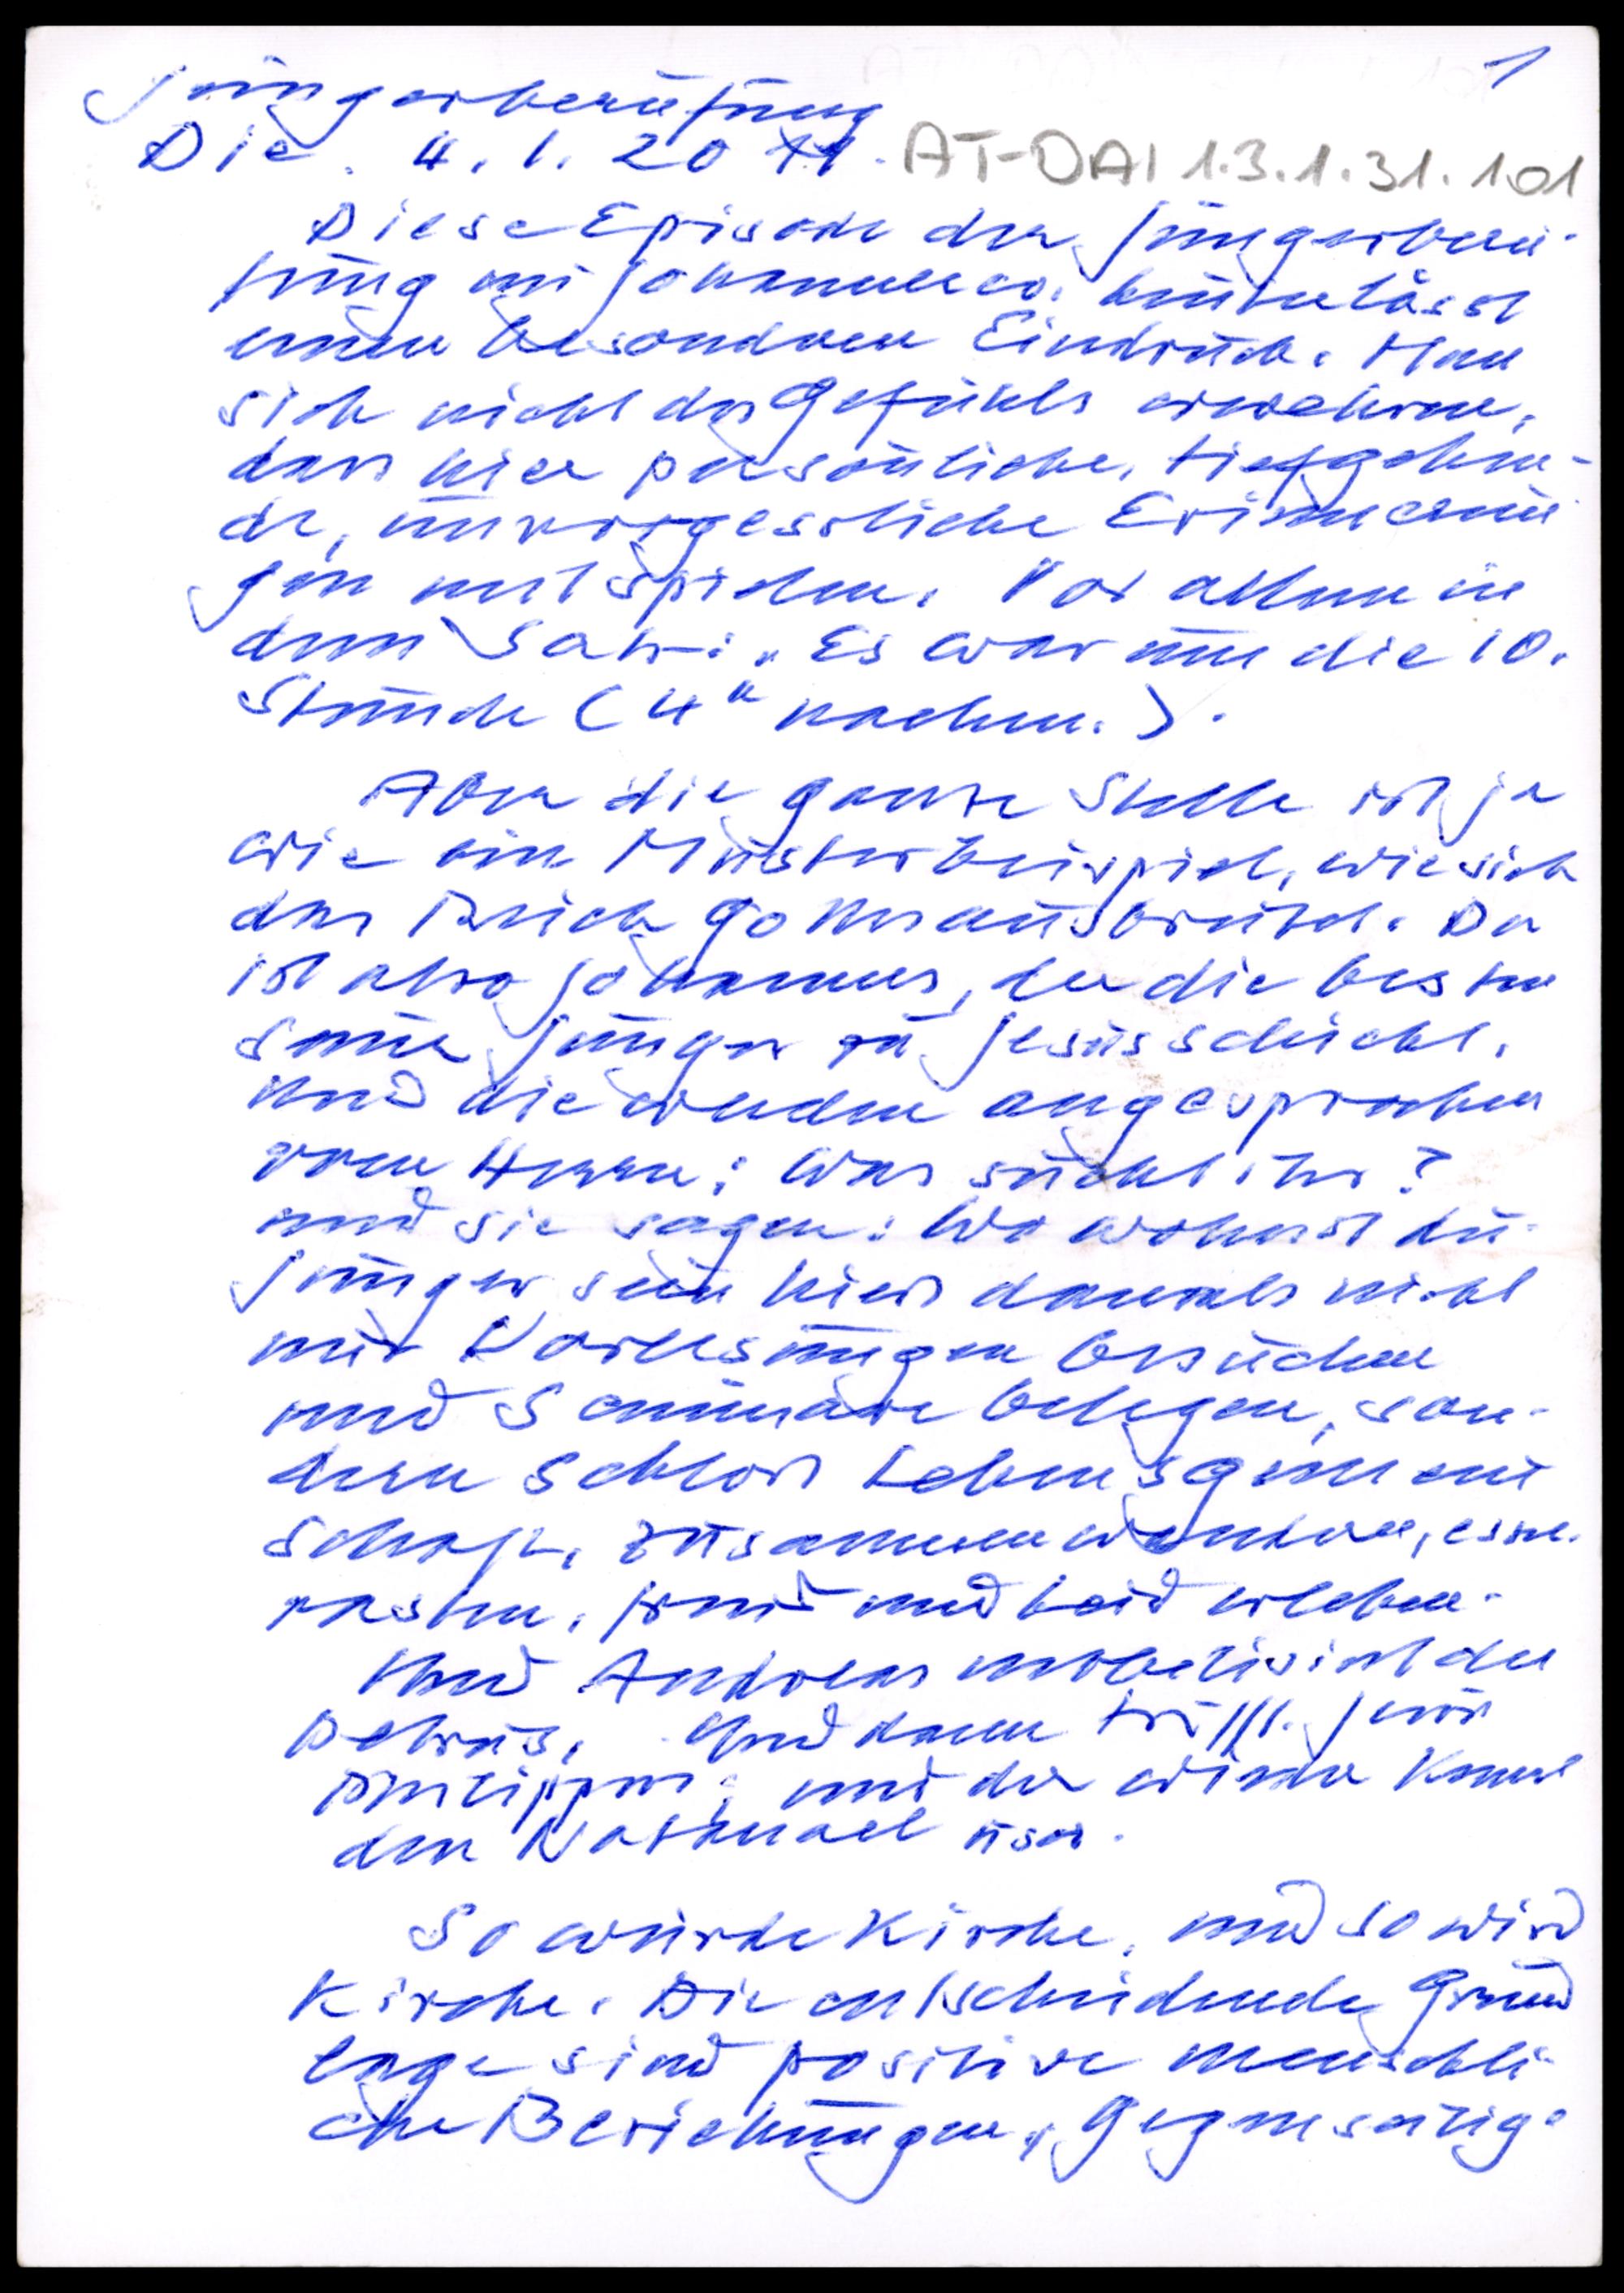 1
Jüngerberufung
Die. 4. 1. 2011. AT-DAI 1.3.1.31.1.01
Diese Episode der Jüngerberu-
fung im Johannesev. hinterlässt
einen besonderen Eindruck. Man
sich nicht des Gefühls erwehren,
dass hier persönliche, tiefgehen-
de, unvergessliche Erinnerun
gen mitspielen. Vor allem in
dem Satz: „Es war um die 10.
Stunde (4" nachm.).
Aber die ganze Stelle ist ja
wie ein Musterbeispiel, wie sich
das Reich Gottes ausbreitet. Da
ist also Johannes, der die besten
seiner Jünger zu Jesus schickt.
Und die werden angesprochen
vom Herrn: Was sucht ihr?
und sie sagen: Wo wohnst du.
Jünger sein hiess damals nicht
nur Vorlesungen besuchen
und Seminare belegen, son-
dern schloss Lebensgemein
schaft, zusammen wandern, essen.
rasten, Freud und Leid erleben.
Und Andreas mobilisiert den
Petrus. Und dann trifft Jesus
Philippus, und der wieder kennt
den Nathanael usw.
So wurde Kirche, und so wird
Kirche. Die entscheidende Grund
lage sind positive menschli-
che Beziehungen, gegenseitig-